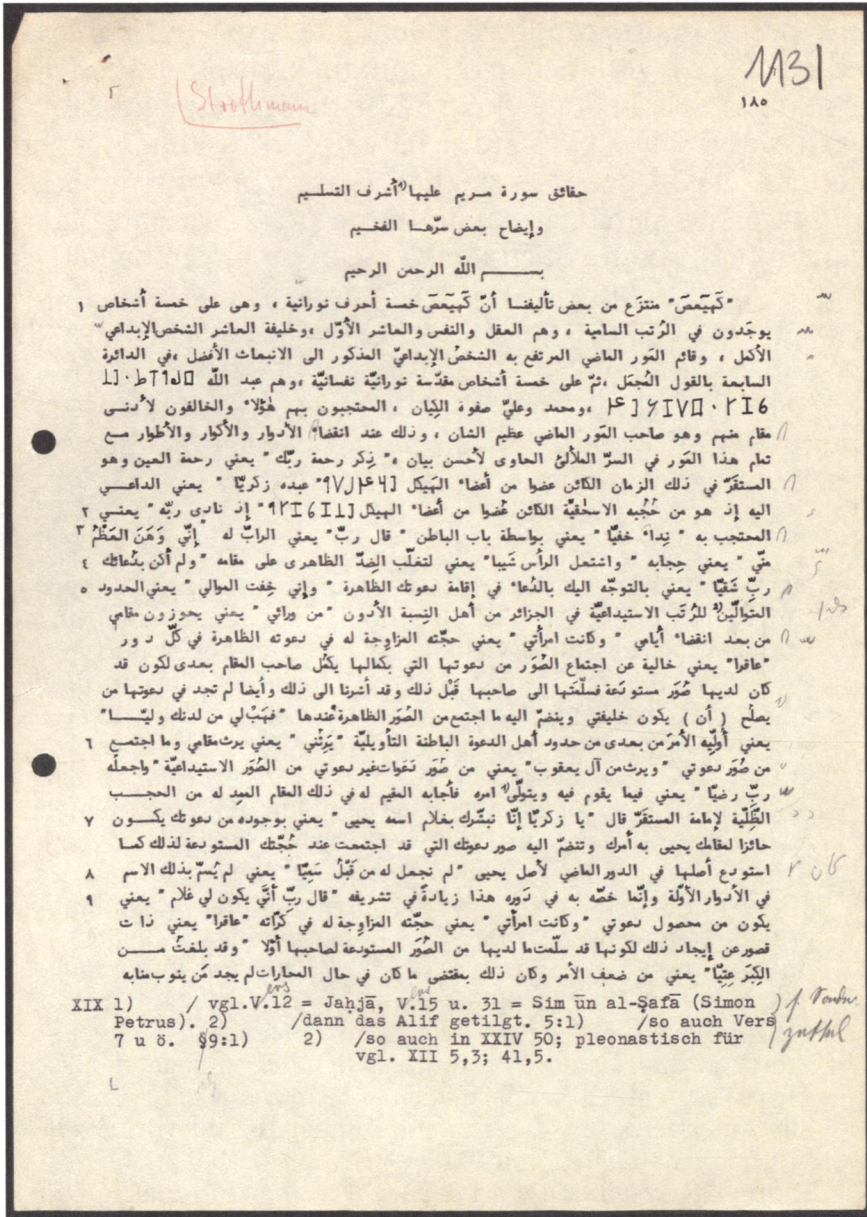 1131
١٨٥
Strothmann
حقائق سورة مريم عليها أشرف التسليم
وإيضاح بعض سرّها الفخيم
بسم اللّه الرحمن الرحيم
"كَهيَعصَ" منتزَع من بعض تأليفنا أنّ كَهيَعصَ خمسة أحرف نورانية ، وهى على خمسة أشخاص ١
يوجَدون في الرُتب السامية ، وهم العقل والنفس والعاشر الأوّل ،وخليفة العاشر الشخص الإبداعي
الأكمل ، وقائم الدَور الماضي المرتفع به الشخصُ الإبداعيّ المذكور الى الانبعاث الأفضل ،في الدائرة
السابعة بالقول المُجمَل ،ثمّ على خمسة أشخاص مقدّسة نورانيّة نفسانيّة ،وهم عبد اللّه
،ومحمد وعليّ صفوة الكِيان ، المحتجبون بهم هٰؤلاء والخالفون لأدنى
مقام منهم وهو صاحب الدَور الماضي عظيم الشان ، وذلك عند انقضاء الأدوار والأكوار والأطوار مع
تمام هذا الدَور في السرّ الملألئ الحاوى لأحسن بيان ،" ذِكر رحمة ربّك " يعني رحمة العين وهو
المستقَرّ في ذلك الزمان الكائن عضوا من أعضاء الهَيكل "عبده زكريّا " يعني الداعي
اليه إذ هو من حُجُبه الاسحٰقيّة الكائن عُضوا من أعضاء الهيكل "إذ نادى ربّه " يعني ٢
المحتجب به " نِداءً خفيّا " يعني بواسطة باب الباطن " قال ربّ" يعني الرابّ له " إنّي وَهَنَ العَظْمُ ٣
منّي " يعني حِجابه " واشتعل الرأس شَيبا" يعني لتغلّب الضِدّ الظاهرى على مقامه " ولم أكن بدُعائك ٤
ربِّ شَقيّا " يعني بالتوجّه اليك بالدُعاء في إقامة دعوتك الظاهرة " وإني خِفت الموالي " يعني الحدود ٥
المتوالّين للرُتَب الاستيداعيّة في الجزائر من أهل النِسبة الأدون " من ورائي " يعني يحوزون مقامي
من بعد انقضاء أيامي " وكانت امرأتي " يعني حجّته المزاوِجة له في دعوته الظاهرة في كلّ دور
"عاقرا" يعني خالية عن اجتماع الصُوَر من دعوتها التي بكمالها يكمُل صاحب المقام بعدى لكون قد
كان لديها صُوَر مستودَعة فسلّمَتها الى صاحبها قَبْل ذلك وقد أشرنا الى ذلك وأيضا لم تجد في دعوتها من
يصلُح ( أن ) يكون خليفتي وينضمّ اليه ما اجتمع من الصُوَر الظاهرة عندها " فهَبْ لي من لدنك وليّا "
يعني أُولِّيه الأمرَ من بعدى من حدود أهل الدعوة الباطنة التأويليّة " يَرِثُني " يعني يرث مقامي وما اجتمع ٦
من صُوَر دعوتي " ويرث من آل يعقوب " يعني من صُوَر دَعَوات غير دعوتي من الصُوَر الاستيداعيّة " واجعله
ربِّ رضيّا " يعني فيما يقوم فيه ويتولّى امره فأجابه المقيم له في ذلك المقام الممِد له من الحجب
الظِلّية لإمامة المستقَرّ قال " يا زكريّا إنّا نبشّرك بغلام اسمه يحيى " يعني بوجوده من دعوتك يكون ٧
حائزا لمقامك يحيى به أمرك وتنضمّ اليه صور دعوتك التي قد اجتمعت عند حُجّتك المستودعة لذلك كما
استودع أصلها في الدور الماضي لأصل يحيى " لم نجعل له من قَبْلُ سَمِيّا " يعني لم يُسمّ بذلك الاسم ٨
في الأدوار الأوّلة وإنّما خصّه به في دَوره هذا زيادةً في تشريفه "قال ربِّ أنّى يكون لي غلام " يعني ٩
يكون من محصول دعوتي " وكانت امرأتي " يعني حجّته المزاوِجة له في كرّاته "عاقرا" يعني ذات
قصور عن إيجاد ذلك لكونها قد سلّمت ما لديها من الصُوَر المستودعة لصاحبها أوّلا " وقد بلغتُ من
الكِبَر عِتِيّا" يعني من ضعف الأمر وكان ذلك بمقتضى ما كان في حال المجارات لم يجد مَن ينوب منابه
XIX 1) / vgl.V.12 = Jaḥjā, V.15 u. 31 = Sim ūn al-Ṣafā (Simon
Petrus). 2) /dann das Alif getilgt. 5:1) /so auch Vers
7 u ö. §9:1) 2) /so auch in XXIV 50; pleonastisch für
vgl. XII 5,3; 41,5.